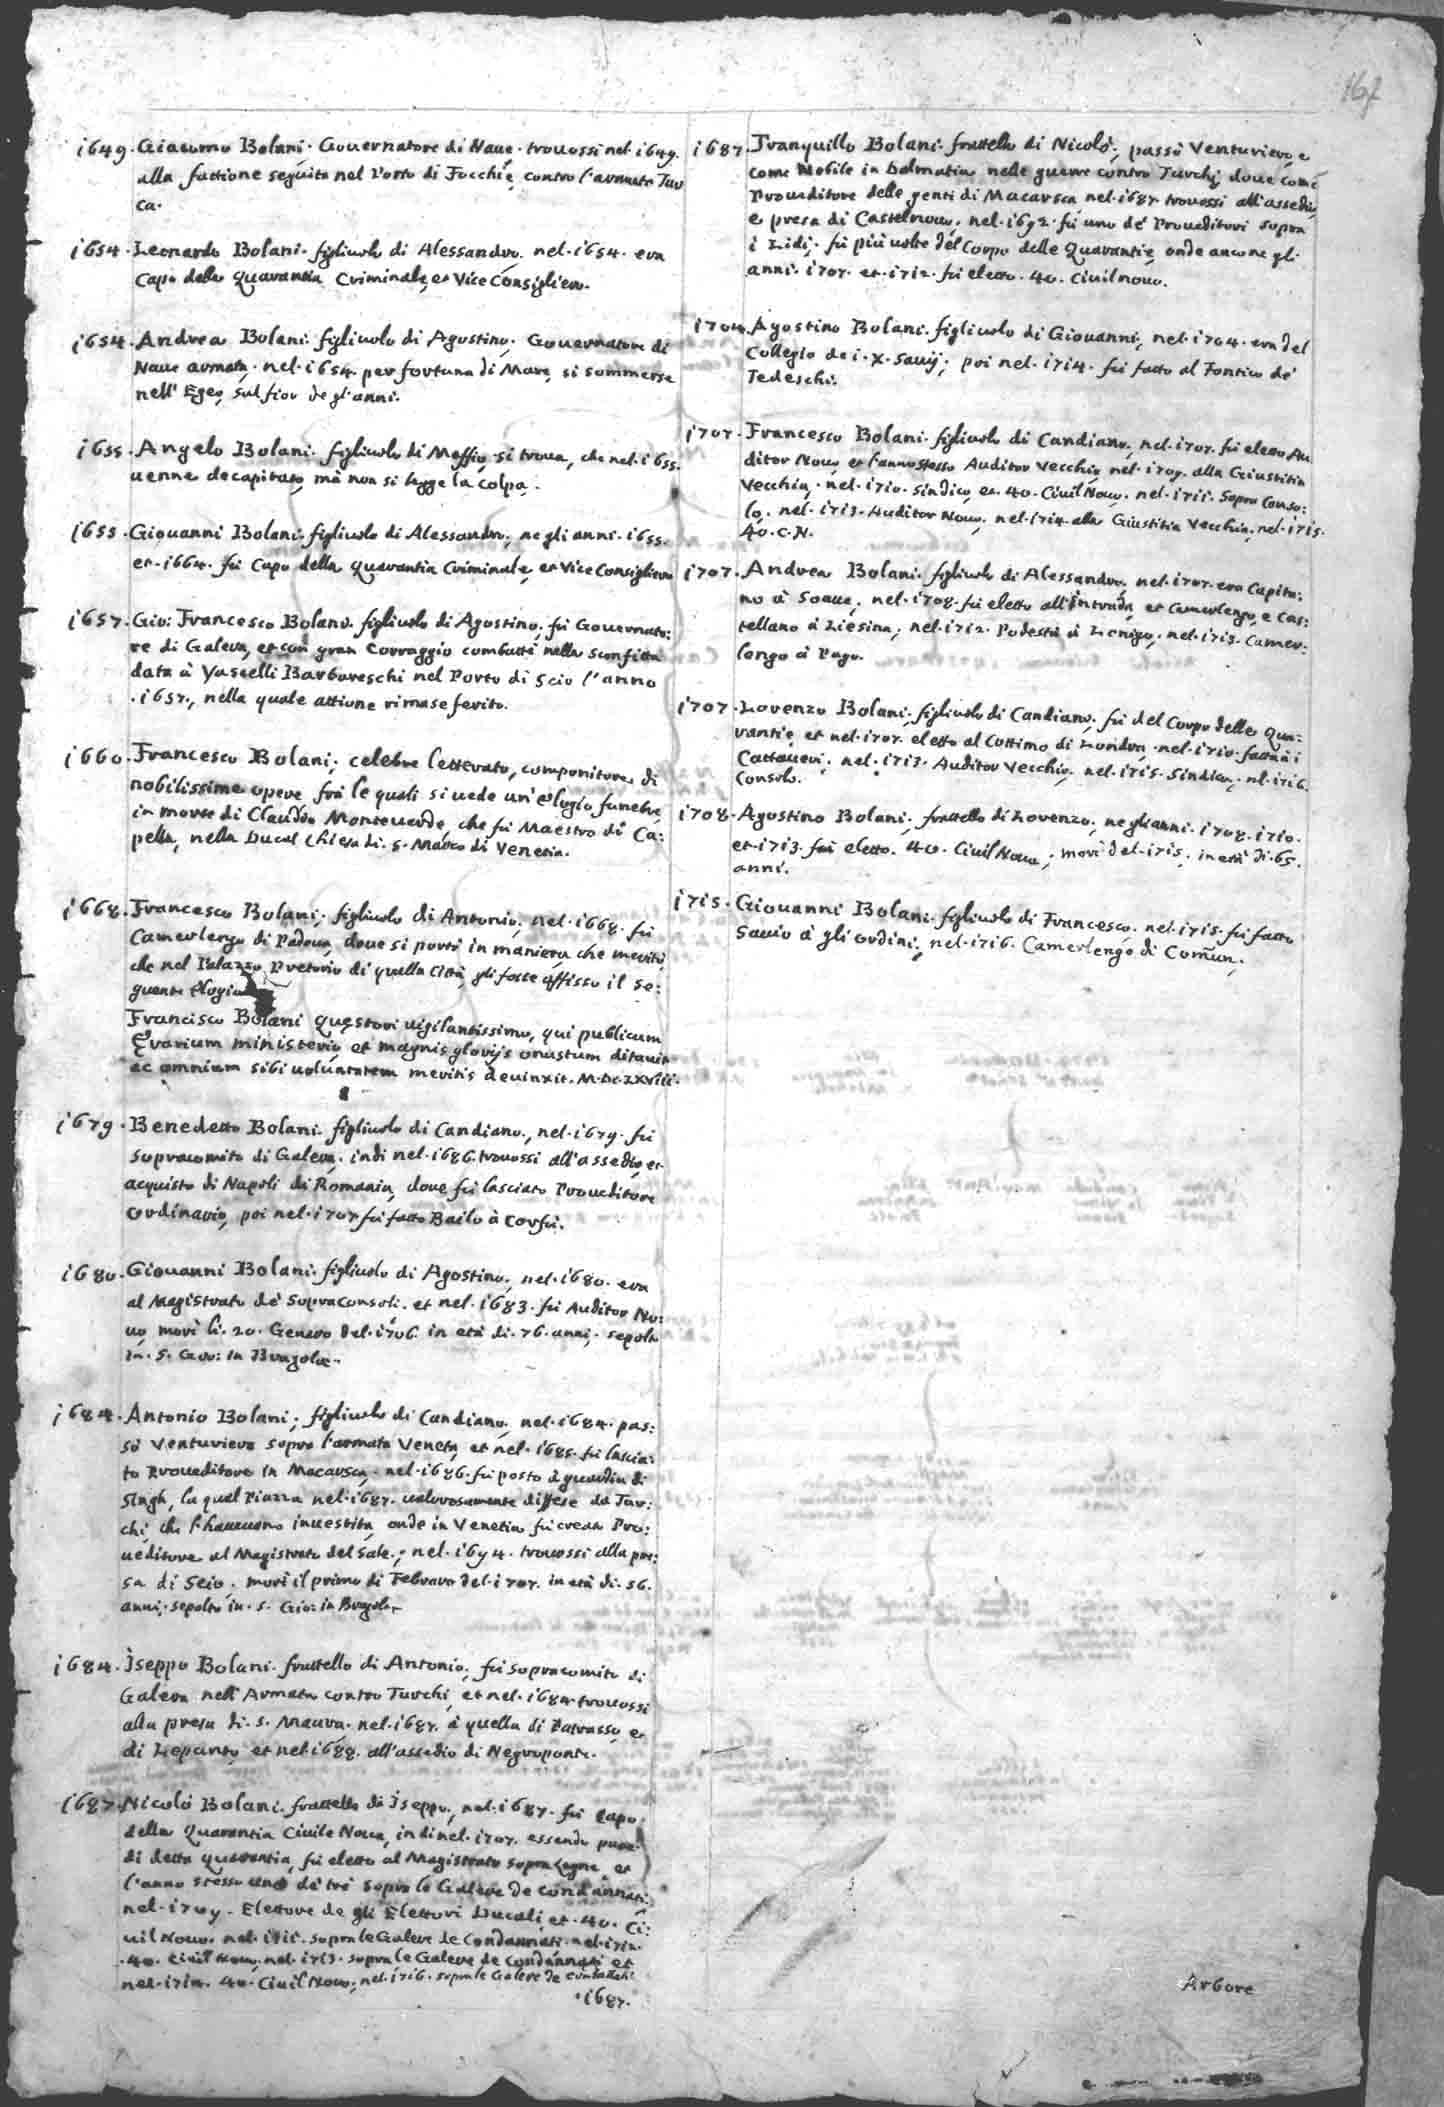 167
1649. Giacomo Bolani. Gouernatore di Naue. trouossi nel. 1649.
alla fattione seguita nel Porto di Focchie, contro l'armata Tur
ca.
1654. Leonardo Bolani. figliuolo di Alessandro. nel. 1654. era
Capo della Quarantia Criminale, et Vice Consigliero.
1654. Andrea Bolani. figliuolo di Agostino. Gouernatore di
Naue armata. nel. 1654. per fortuna di Mare, si sommerse
nell' Egeo, sul fior de gl'anni.
1655. Angelo Bolani. figliuolo di Maffio, si troua, che nel. 1655.
uenne decapitato, mà non si legge la colpa.
1655. Giouanni Bolani. figliuolo di Alessandro, ne gli anni. 1655.
et. 1664. fù Capo della Quarantia Criminale, et Vice Consigliero
1657. Gio: Francesco Bolani. figliuolo di Agostino, fù Gouernato:
re di Galera, et con gran Corraggio combattè nella sconfitta
data à Vascelli Barbareschi nel Porto di Scio l'anno
. 1657., nella quale attione rimase ferito.
1660. Francesco Bolani, celebre letterato, compositore di
nobilissime opere frà le quali si uede un'elogio funebre
in morte di Claudio Monteuerde, che fù Maestro di Ca:
pella, nella Ducal Chiesa di. S. Marco di Venetia.
1668. Francesco Bolani, figliuolo di Antonio, nel. 1668. fù
Camerlengo di Padoua, doue si portò in maniera, che meritò,
che nel Palazzo Pretorio di quella Città, gli fosse affisso il se:
guente Elogio
Francisco Bolani Quęstori uigilantissimo, qui publicum
Ęrarium ministerio, et magnis glorijs onustum ditauit
ac omnium sibi uoluntatem meritis deuinxit. M.DC.LXVIII.
1679. Benedetto Bolani. figliuolo di Candiano, nel. 1679. fù
Sopracomito di Galera, indi nel. 1686. trouossi all'assedio, et
acquisto di Napoli di Romania, doue fù lasciato Proueditore
ordinario, poi nel. 1707. fù fatto Bailo à Corfù.
1680. Giouanni Bolani. figliuolo di Agostino, nel. 1680. era
al Magistrato de' Sopraconsoli. et nel. 1683. fù Auditor No:
uo, morì li. 20. Genaro del. 1706. in età di. 76. anni, sepolto
in. S. Gio: in Bragola.
1684. Antonio Bolani, figliuolo di Candiano, nel. 1684. pas:
sò Venturiero sopra l'armata Veneta, et nel. 1685. fù lascia:
to Proueditore in Macarsca. nel. 1686. fù posto à guardia di
Singh, la qual Piazza nel. 1687. ualorosamente diffese da Tur:
chi, che l'haueuano inuestita, onde in Venetia fù creato Pro:
ueditore al Magistrato del Sale., nel. 1694. trouossi alla pre:
sa di Scio. morì il primo di Febraro del. 1707. in età di. 56.
anni, sepolto in. S. Gio: in Bragola.
1684. Iseppo Bolani. frattello di Antonio, fù Sopracomito di
Galera nell'Armata contro Turchi, et nel. 1684. trouossi
alla presa di. S. Maura. nel. 1687. à quella di Patrasso, et
di Lepanto, et nel. 1688. all'assedio di Negroponte.
1687. Nicolò Bolani. frattello di Iseppo, nel. 1687. fù Capo
della Quarantia Ciuile Noua, indi nel. 1707. essendo pure
di detta Quarantia, fù eletto al Magistrato sopra Legne, et
l'anno stesso uno de' trè sopra le Galere de Condannati.
nel. 1709. Elettore de gli Elettori Ducali, et. 40. Ci:
uil Nouo. nel. 1711. sopra le Galere de Condannati. nel. 1712.
. 40. Ciuil Nouo, nel. 1713. sopra le Galere de Condannati et
nel. 1714. 40. Ciuil Nouo, nel. 1716. sopra le Galere de Condannati.
. 1687.
1687. Tranquillo Bolani. frattello di Nicolò, passò Venturiero, e
come Nobile in Dalmatia nelle guerre contro Turchi, doue come
Proueditore delle genti di Macarsca nel. 1687. trouossi all'assedio,
e presa di Castelnouo. nel. 1692. fù uno de' Proueditori sopra
i Lidi, fù più uolte del Corpo delle Quarantie, onde ancone gl'
anni. 1707. et. 1712. fù eletto. 40. Ciuil nouo.
1704. Agostino Bolani. figliuolo di Giouanni, nel. 1704. era del
Collegio de i. X. Sauij, poi nel. 1714. fù fatto al Fontico de'
Tedeschi.
1707. Francesco Bolani. figliuolo di Candiano, nel. 1707. fù eletto Au
ditor Nouo et l'anno stesso Auditor Vecchio, nel. 1709. alla Giustitia
Vecchia. nel. 1710. Sindico, et. 40. Ciuil Nouo. nel. 1711. Sopra Conso:
lo. nel. 1713. Auditor Nouo. nel. 1714. alla Giustitia Vecchia, nel. 1715.
40. C. N.
1707. Andrea Bolani. figliuolo di Alessandro. nel. 1707. era Capita:
no à Soaue, nel. 1708. fù eletto all'Intrada, et Camerlengo, e Cas:
tellano à Liesina, nel. 1712. Podestà à Lonigo, nel. 1713. Camer:
lengo à Pago.
1707. Lorenzo Bolani. figliuolo di Candiano, fù del Corpo delle Qua:
rantie, et nel. 1707. eletto al Cottimo di Londra. nel. 1710. frà i
Cattaueri, nel. 1713. Auditor Vecchio. nel. 1715. Sindico, nel. 1716.
Consolo.
1708. Agostino Bolani, frattello di Lorenzo, ne gli anni. 1708. 1710.
et. 1713. fù eletto. 40. Ciuil Nouo, morì del. 1715. in età di. 65.
anni.
1715. Giouanni Bolani. figliuolo di Francesco. nel. 1715. fù fatto
Sauio à gli ordini, nel. 1716. Camerlengo di Comun.
Arbore